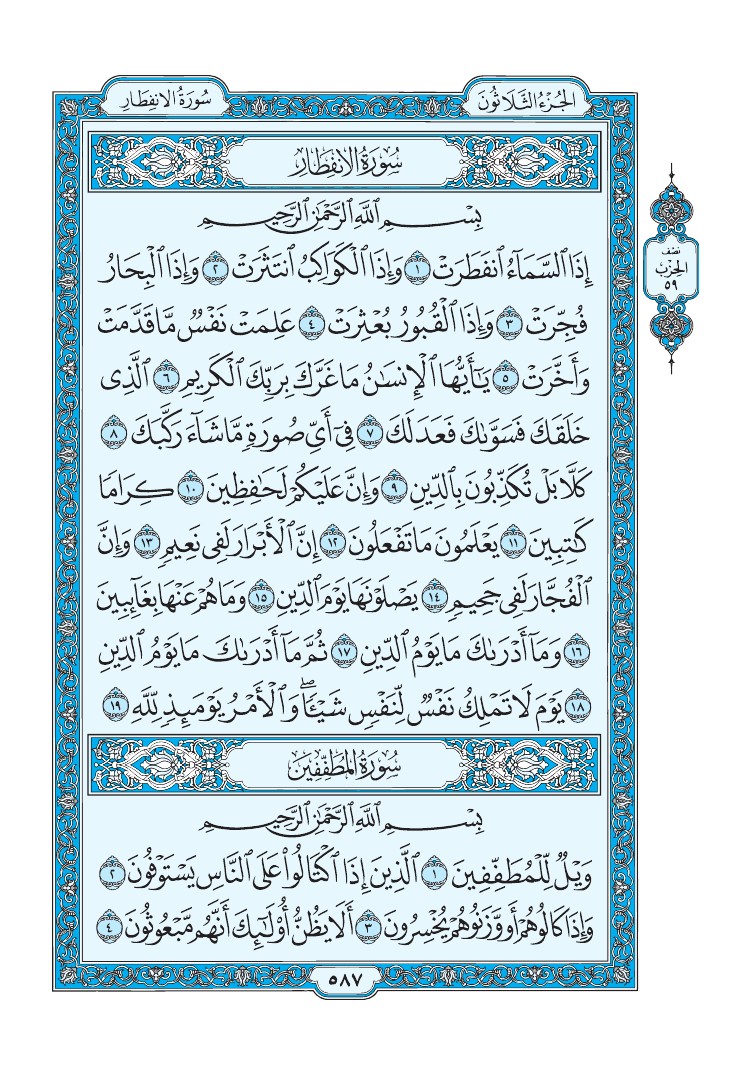 الجُزْءُ الثَّلَاثُونَ
سُورَةُ الانفِطَارِ
سُورَةُ الانفِطَارِ
بِسْمِ ٱللَّهِ ٱلرَّحْمَٰنِ ٱلرَّحِيمِ
إِذَا ٱلسَّمَآءُ ٱنفَطَرَتْ ١ وَإِذَا ٱلْكَوَاكِبُ ٱنتَثَرَتْ ٢ وَإِذَا ٱلْبِحَارُ
فُجِّرَتْ ٣ وَإِذَا ٱلْقُبُورُ بُعْثِرَتْ ٤ عَلِمَتْ نَفْسٌ مَّا قَدَّمَتْ
وَأَخَّرَتْ ٥ يَٰٓأَيُّهَا ٱلْإِنسَٰنُ مَا غَرَّكَ بِرَبِّكَ ٱلْكَرِيمِ ٦ ٱلَّذِى
خَلَقَكَ فَسَوَّىٰكَ فَعَدَلَكَ ٧ فِىٓ أَىِّ صُورَةٍ مَّا شَآءَ رَكَّبَكَ ٨
كَلَّا بَلْ تُكَذِّبُونَ بِٱلدِّينِ ٩ وَإِنَّ عَلَيْكُمْ لَحَٰفِظِينَ ١٠ كِرَامًا
كَٰتِبِينَ ١١ يَعْلَمُونَ مَا تَفْعَلُونَ ١٢ إِنَّ ٱلْأَبْرَارَ لَفِى نَعِيمٍ ١٣ وَإِنَّ
ٱلْفُجَّارَ لَفِى جَحِيمٍ ١٤ يَصْلَوْنَهَا يَوْمَ ٱلدِّينِ ١٥ وَمَا هُمْ عَنْهَا بِغَآئِبِينَ
١٦ وَمَآ أَدْرَىٰكَ مَا يَوْمُ ٱلدِّينِ ١٧ ثُمَّ مَآ أَدْرَىٰكَ مَا يَوْمُ ٱلدِّينِ
١٨ يَوْمَ لَا تَمْلِكُ نَفْسٌ لِّنَفْسٍ شَيْـًٔا ۖ وَٱلْأَمْرُ يَوْمَئِذٍ لِّلَّهِ ١٩
سُورَةُ المُطَفِّفِينَ
بِسْمِ ٱللَّهِ ٱلرَّحْمَٰنِ ٱلرَّحِيمِ
وَيْلٌ لِّلْمُطَفِّفِينَ ١ ٱلَّذِينَ إِذَا ٱكْتَالُوا۟ عَلَى ٱلنَّاسِ يَسْتَوْفُونَ ٢
وَإِذَا كَالُوهُمْ أَو وَّزَنُوهُمْ يُخْسِرُونَ ٣ أَلَا يَظُنُّ أُو۟لَٰٓئِكَ أَنَّهُم مَّبْعُوثُونَ ٤
٥٨٧
نصف
الحزب
٥٩